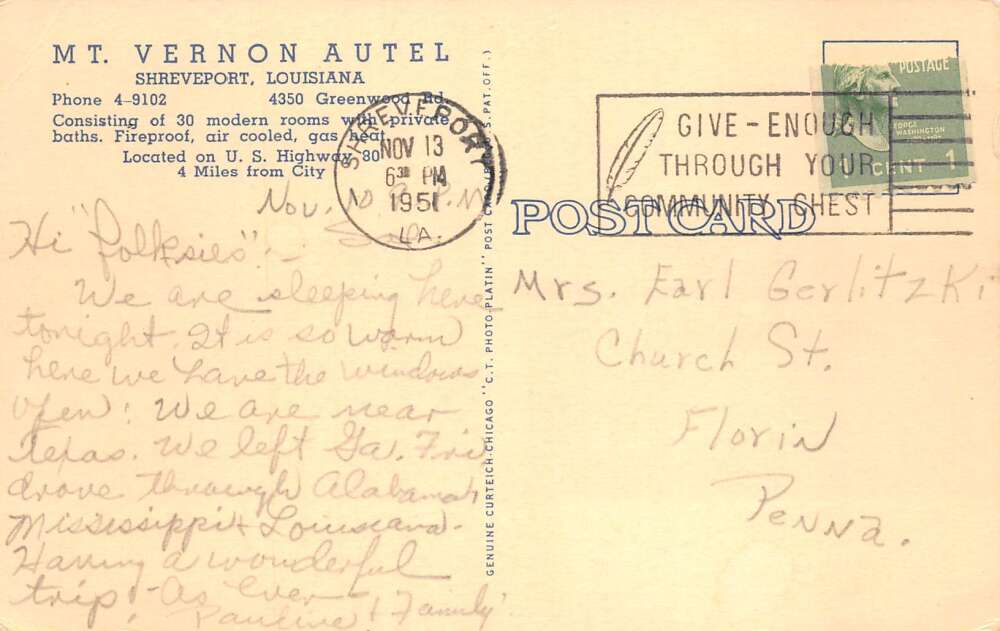 MT. VERNON AUTEL
SHREVEPORT, LOUISIANA
Phone 4-9102 4350 Greenwood Rd.
Consisting of 30 modern rooms with private
baths. Fireproof, air cooled, gas heat.
Located on U. S. Highway 80
4 Miles from City
SHREVEPORT
NOV 13
6 30 PM
1951
LA.
Nov. 10 P.M.
Hi "Folksies":-
We are sleeping here
tonight. It is so warm
here we have the windows
open! We are near
Texas. We left Ga. Fri.
drove through Alabama,
Mississippi & Louisiana.
Having a wonderful
trip! As Ever -
Pauline & Family
GENUINE CURTEICH-CHICAGO "C.T. PHOTO-PLATIN" POST CARD (REG. U.S. PAT. OFF.)
POST CARD
GIVE - ENOUGH
THROUGH YOUR
COMMUNITY CHEST
POSTAGE
GEORGE
WASHINGTON
1 CENT 1
Mrs. Earl Gerlitzki
Church St.
Florin
Penna.